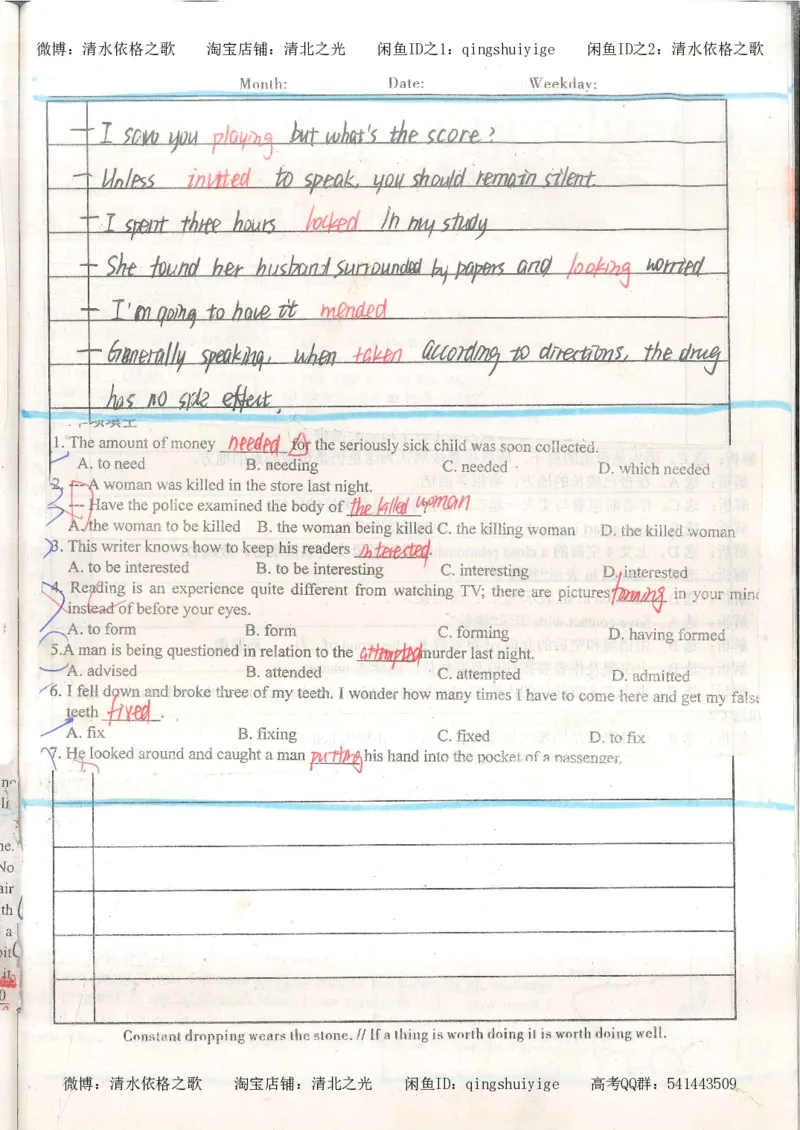 微博：清水依格之歌 淘宝店铺：清北之光 闲鱼ID之1：qingshuiyige 闲鱼ID之2：清水依格之歌
Month: Date: Weekday:
I saw you playing but what's the score?
Unless invited to speak, you should remain silent.
I spent three hours locked in my study
She found her husband surrounded by papers and looking worried
I'm going to have it mended
Generally speaking, when taken according to directions, the drug
has no side effect.
1. The amount of money needed for the seriously sick child was soon collected.
A. to need B. needing C. needed D. which needed
2. --- A woman was killed in the store last night.
--- Have the police examined the body of the killed woman?
A. the woman to be killed B. the woman being killed C. the killing woman D. the killed woman
3. This writer knows how to keep his readers interested.
A. to be interested B. to be interesting C. interesting D. interested
4. Reading is an experience quite different from watching TV; there are pictures forming in your mind
instead of before your eyes.
A. to form B. form C. forming D. having formed
5.A man is being questioned in relation to the attempted murder last night.
A. advised B. attended C. attempted D. admitted
6. I fell down and broke three of my teeth. I wonder how many times I have to come here and get my false
teeth fixed.
A. fix B. fixing C. fixed D. to fix
7. He looked around and caught a man putting his hand into the pocket of a passenger.
Constant dropping wears the stone. // If a thing is worth doing it is worth doing well.
微博：清水依格之歌 淘宝店铺：清北之光 闲鱼ID：qingshuiyige 高考QQ群：541443509